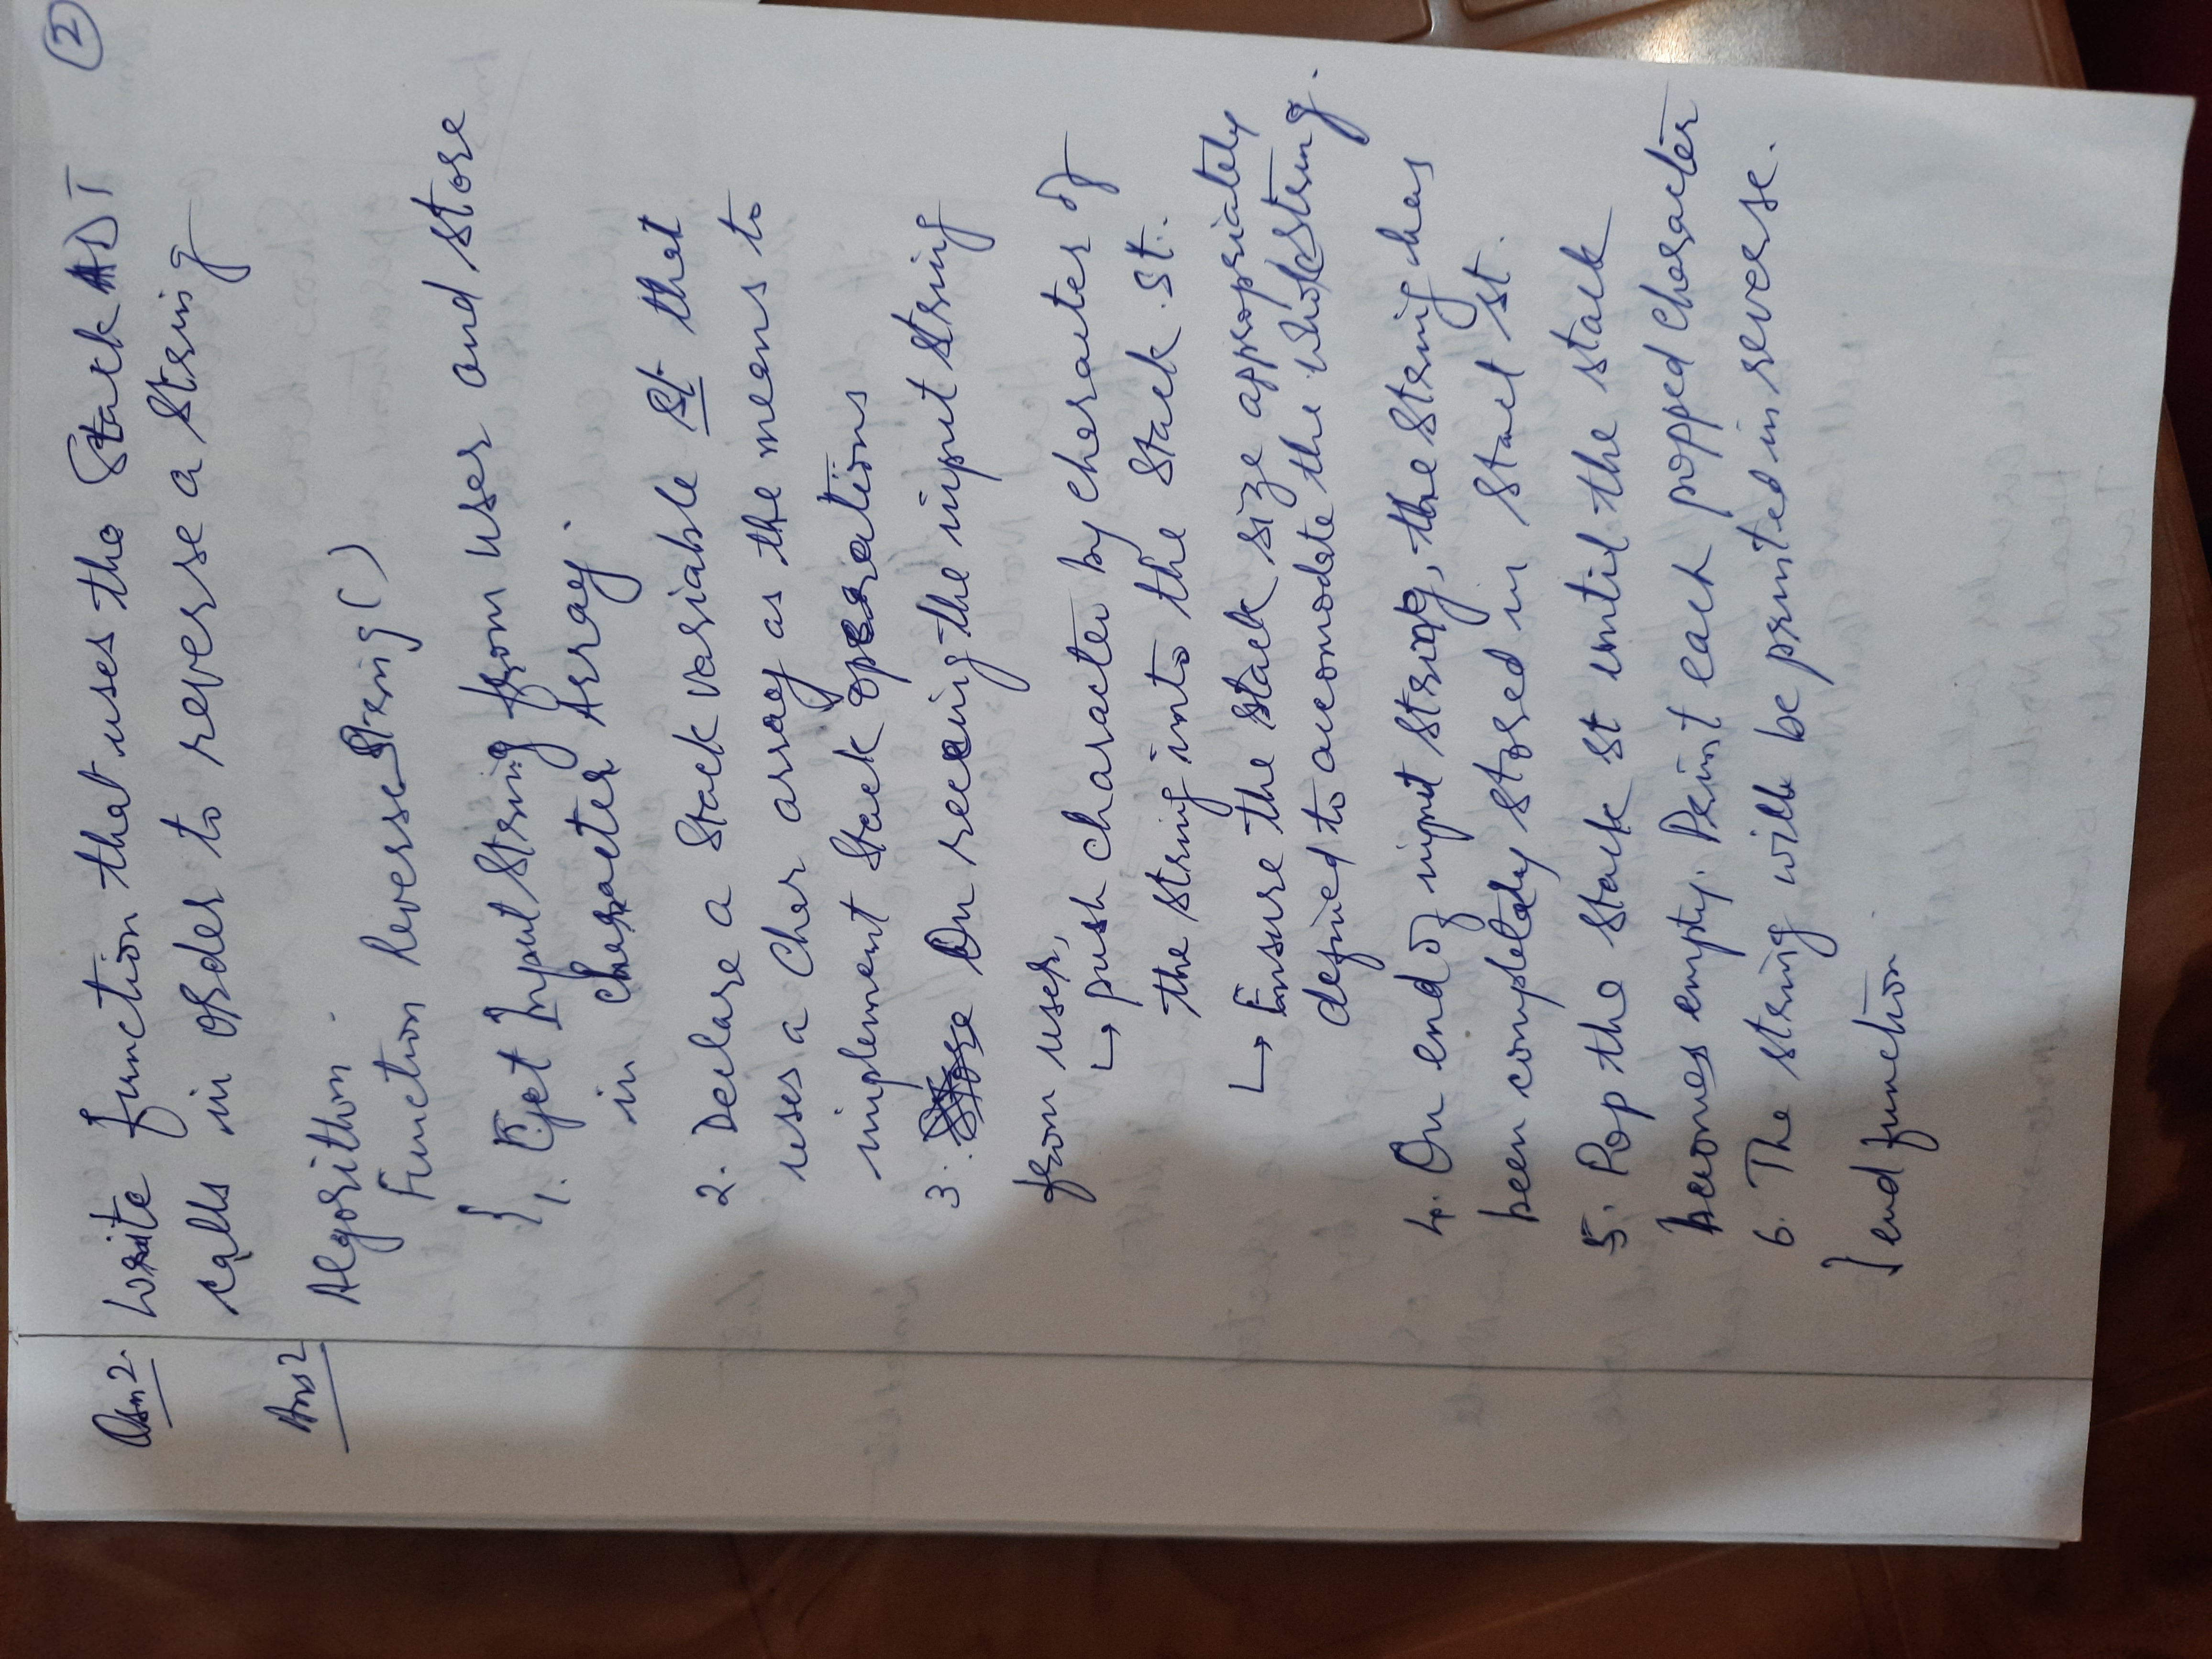 2
Qsn2. Write function that uses the Stack ADT
calls in order to reverse a String
Ans2
Algorithm.
Function ReverseString()
{
1. Get Input String from user and store
in character Array.
2. Declare a Stack variable St that
uses a Char array as the means to
implement Stack operations
3. Store On receing the input string
from user,
↳ push character by character of
the string into the Stack St.
↳ Ensure the stack size appropriately
defined to accomodate the whole String.
4. On end of input string, the String has
been completely stored in Stack st.
5. Pop the Stack st until the stack
becomes empty. Print each popped character
6. The string will be printed in reverse.
} end function